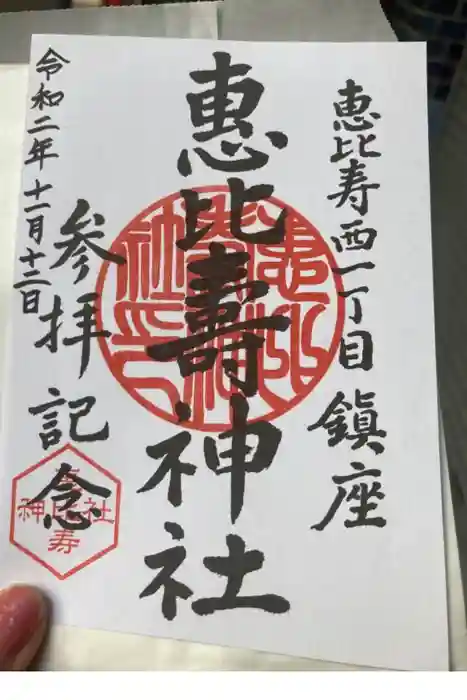 恵比寿西一丁目鎮座
惠比壽神社
参拝記念
令和二年十一月十二日
恵比寿
神社